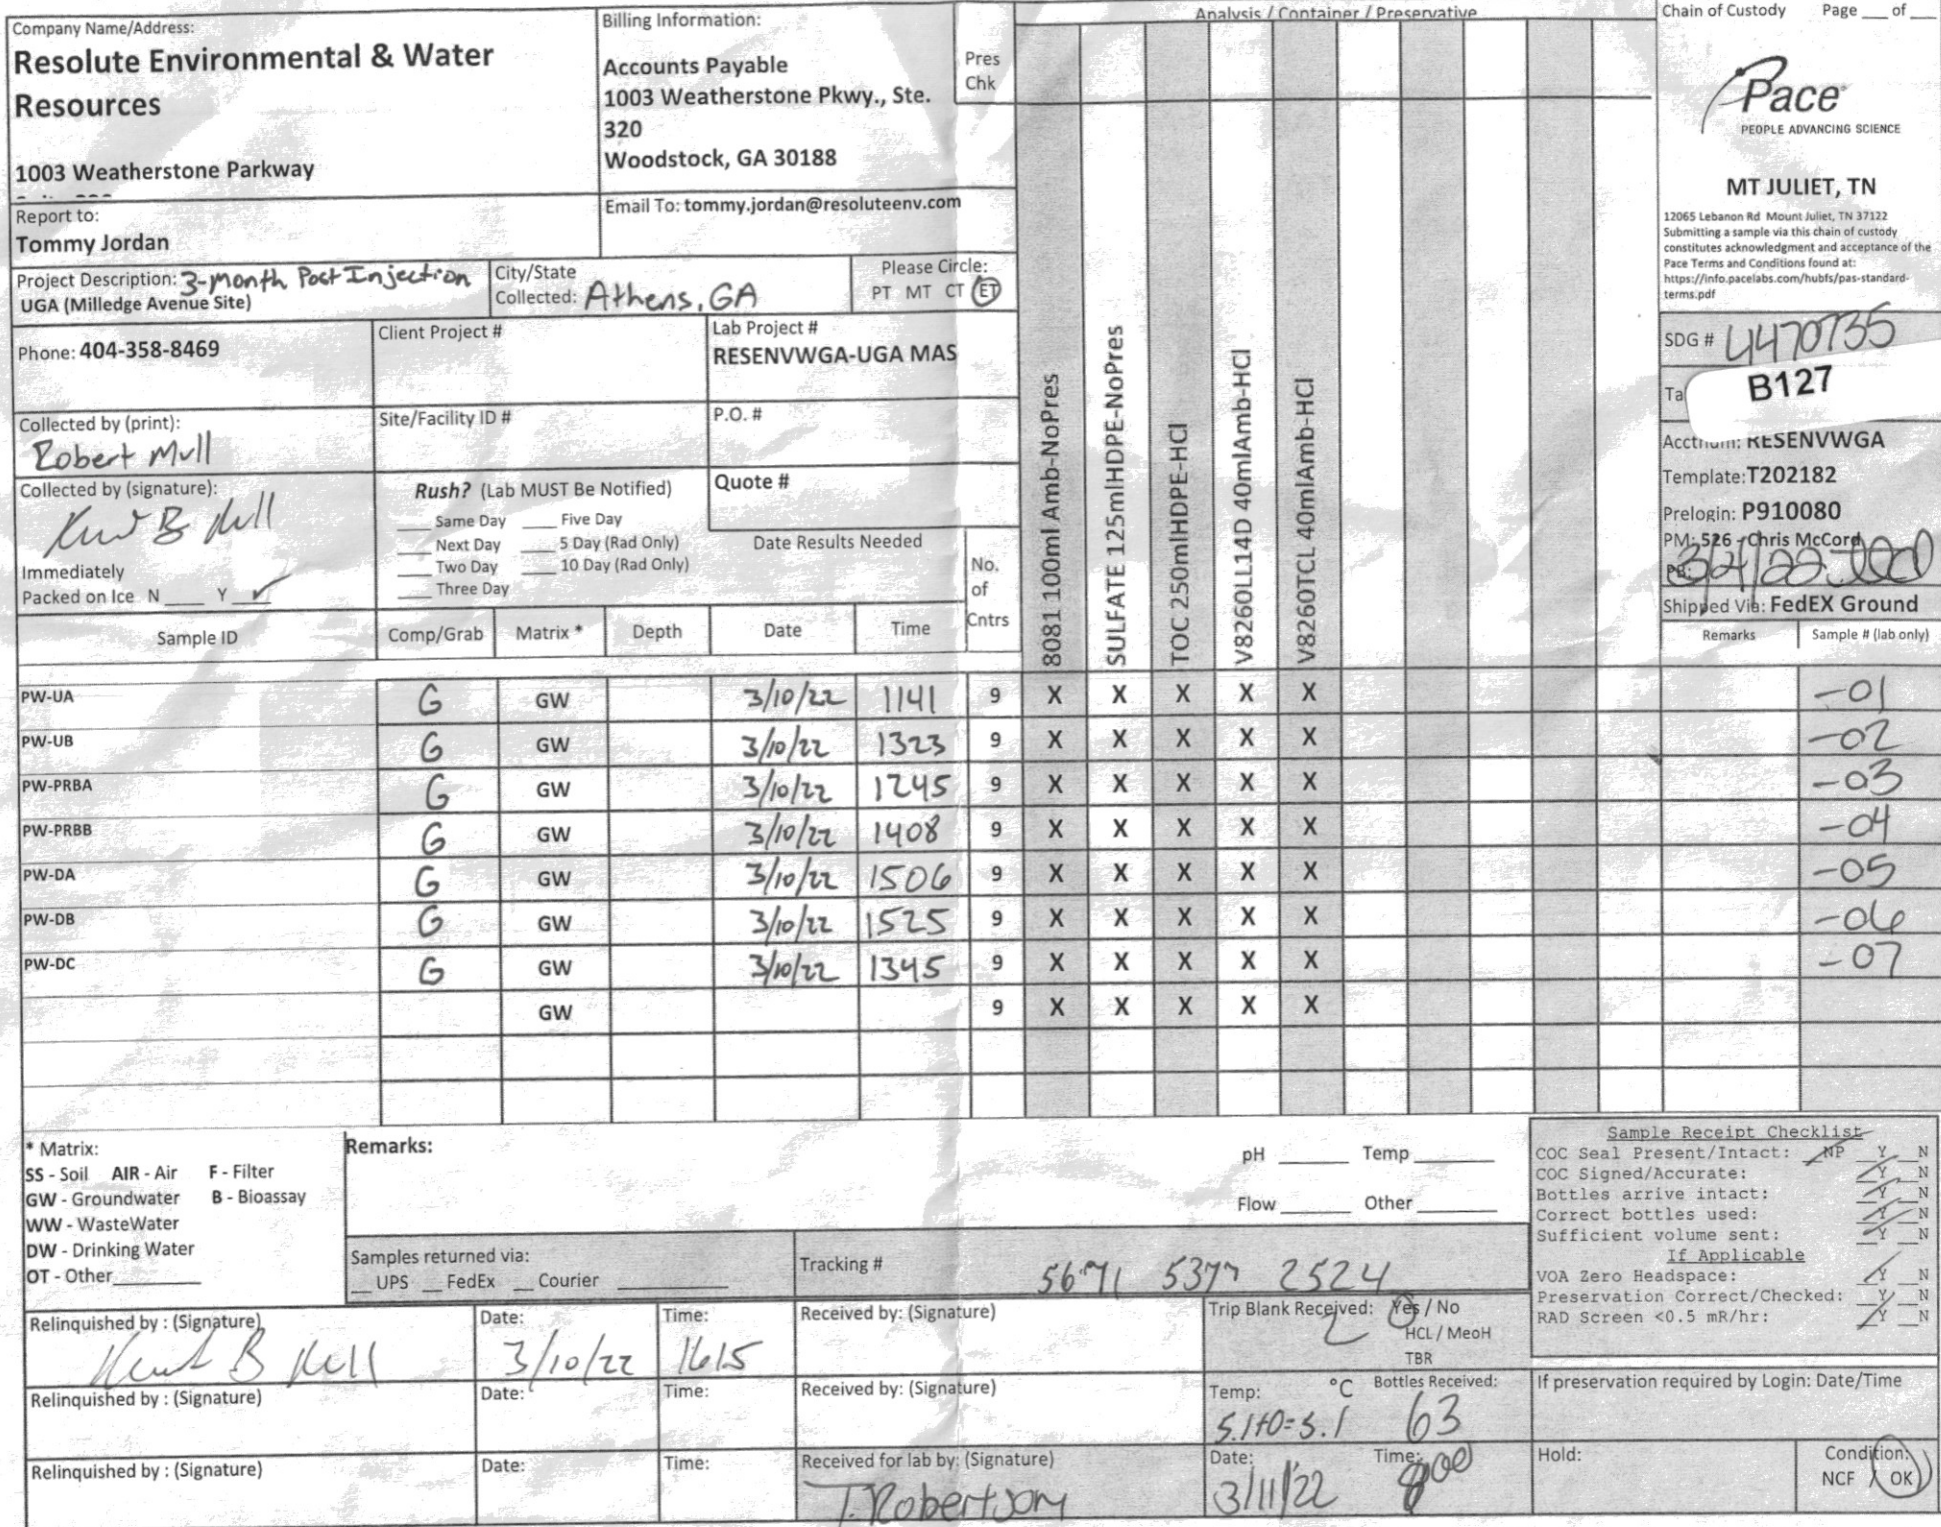 Company Name/Address:
Resolute Environmental & Water
Resources
1003 Weatherstone Parkway
Report to:
Tommy Jordan
Billing Information:
Accounts Payable
1003 Weatherstone Pkwy., Ste.
320
Woodstock, GA 30188
Email To: tommy.jordan@resoluteenv.com
Pres
Chk
Analysis / Container / Preservative
Chain of Custody Page ___ of ___
Pace
PEOPLE ADVANCING SCIENCE
MT JULIET, TN
12065 Lebanon Rd Mount Juliet, TN 37122
Submitting a sample via this chain of custody
constitutes acknowledgment and acceptance of the
Pace Terms and Conditions found at:
https://info.pacelabs.com/hubfs/pas-standard-
terms.pdf
Project Description: 3-Month Post Injection
UGA (Milledge Avenue Site)
City/State
Collected: Athens, GA
Please Circle:
PT MT CT ET
Phone: 404-358-8469
Client Project #
Lab Project #
RESENVWGA-UGA MAS
Collected by (print):
Robert Mull
Site/Facility ID #
P.O. #
Collected by (signature):
Immediately
Packed on Ice N ___ Y ✓
Rush? (Lab MUST Be Notified)
___ Same Day ___ Five Day
___ Next Day ___ 5 Day (Rad Only)
___ Two Day ___ 10 Day (Rad Only)
___ Three Day
Quote #
Date Results Needed
No.
of
Cntrs
8081 100ml Amb-NoPres
SULFATE 125mlHDPE-NoPres
TOC 250mlHDPE-HCl
V8260LL14D 40mlAmb-HCl
V8260TCL 40mlAmb-HCl
SDG # 4470735
Ta
B127
Acctnum: RESENVWGA
Template:T202182
Prelogin: P910080
PM: 526 - Chris McCord
PB:
Shipped Via: FedEX Ground
Sample ID Comp/Grab Matrix * Depth Date Time Remarks Sample # (lab only)
PW-UA G GW 3/10/22 1141 9 X X X X X -01
PW-UB G GW 3/10/22 1323 9 X X X X X -02
PW-PRBA G GW 3/10/22 1245 9 X X X X X -03
PW-PRBB G GW 3/10/22 1408 9 X X X X X -04
PW-DA G GW 3/10/22 1506 9 X X X X X -05
PW-DB G GW 3/10/22 1525 9 X X X X X -06
PW-DC G GW 3/10/22 1345 9 X X X X X -07
GW 9 X X X X X
* Matrix:
SS - Soil AIR - Air F - Filter
GW - Groundwater B - Bioassay
WW - WasteWater
DW - Drinking Water
OT - Other
Remarks:
pH ___ Temp ___
Flow ___ Other ___
Samples returned via:
__ UPS __ FedEx __ Courier
Tracking # 5671 5377 2524
Sample Receipt Checklist
COC Seal Present/Intact: NP Y N
COC Signed/Accurate: Y N
Bottles arrive intact: Y N
Correct bottles used: Y N
Sufficient volume sent: Y N
If Applicable
VOA Zero Headspace: Y N
Preservation Correct/Checked: Y N
RAD Screen <0.5 mR/hr: Y N
Relinquished by : (Signature)
Date: 3/10/22
Time: 1615
Received by: (Signature)
Trip Blank Received: Yes / No
2
HCL / MeoH
TBR
Relinquished by : (Signature)
Date:
Time:
Received by: (Signature)
Temp: °C
5.1+0=5.1
Bottles Received:
63
If preservation required by Login: Date/Time
Relinquished by : (Signature)
Date:
Time:
Received for lab by: (Signature)
T. Robertson
Date: 3/11/22
Time: 900
Hold:
Condition:
NCF / OK